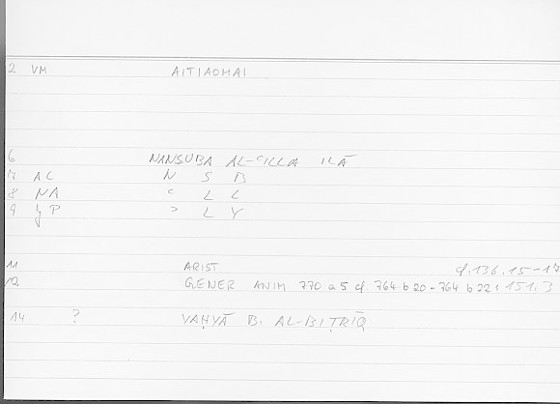 2 VM AITIAOMAI
6 NANSUBA AL-ʿILLA ILĀ
7 AC N S B
8 NA ʿ L L
9 YP ʾ L Y
11 ARIST cf. 136.15-17
12 GENER ANIM 770 a 5 cf. 764 b 20 - 764 b 22: 151.3
14 ? YAḤYĀ B. AL-BIṬRĪQ